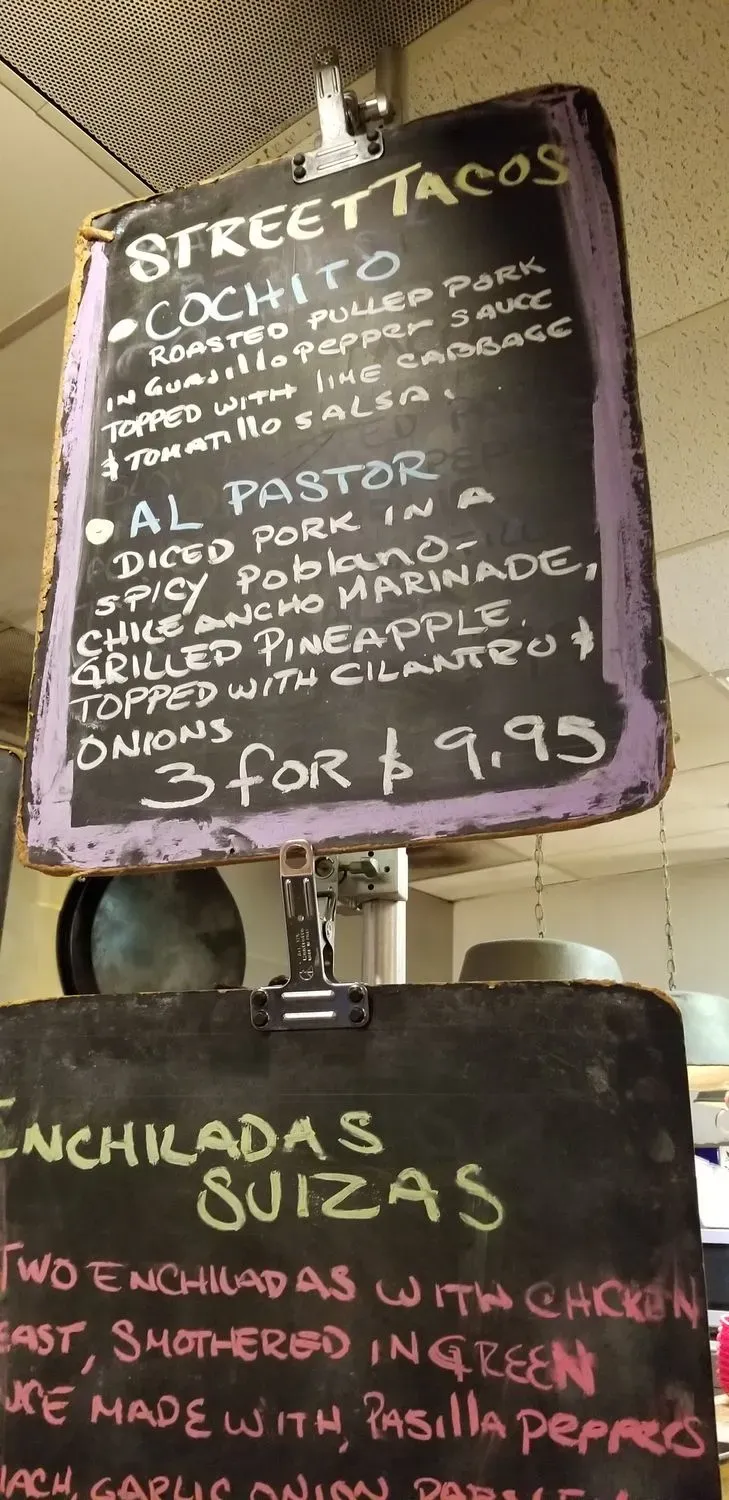 STREET TACOS
• COCHITO
ROASTED PULLED PORK
IN GUAJIllo PEPPER SAUCE
TOPPED WITH lIME CABBAGE
$ TOMATIllo SALSA.
• AL PASTOR
DICED PORK IN A
SPICY Poblano-
CHILE ANCHO MARINADE,
GRILLED PINEAPPLE.
TOPPED WITH CILANTRO $
ONIONS
3 foR $ 9.95
ENCHILADAS
SUIZAS
TWO ENCHILADAS WITH CHICKEN
EAST, SMOTHERED IN GREEN
UCE MADE WITH, PASIlla PEPPERS
ACH, GARLIC ONION